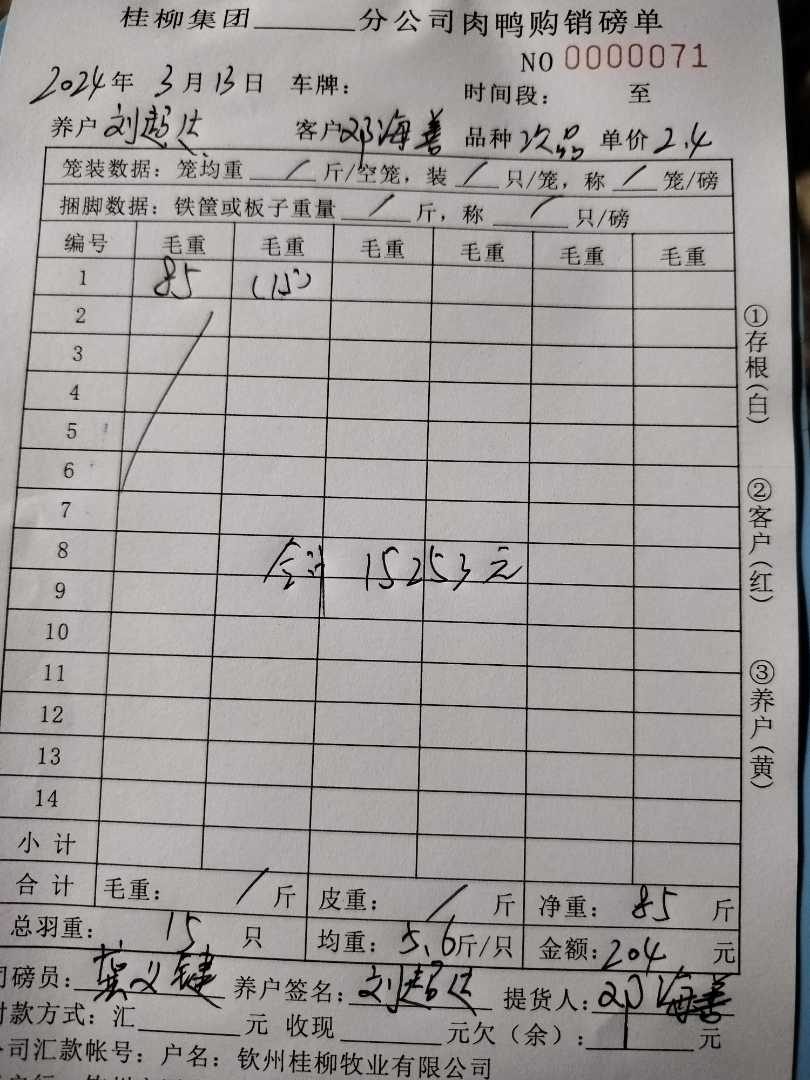 桂柳集团______分公司肉鸭购销磅单
NO 0000071
2024年 3月13日 车牌: 时间段: 至
养户 刘超达 客户 邓海善 品种 次品 单价 2.4
笼装数据: 笼均重 / 斤/空笼, 装 / 只/笼, 称 / 笼/磅
捆脚数据: 铁筐或板子重量 / 斤, 称 / 只/磅
编号 毛重 毛重 毛重 毛重 毛重 毛重
1 85 (15)
2
3
4
5
6
7
8
合计 15253元
9
10
11
12
13
14
小计
合计 毛重: / 斤 皮重: / 斤 净重: 85 斤
总羽重: 15 只 均重: 5.6斤/只 金额: 204 元
司磅员: 龚义键 养户签名: 刘超达 提货人: 邓海善
付款方式: 汇______元 收现______元欠(余):______元
公司汇款帐号: 户名: 钦州桂柳牧业有限公司
①存根(白)
②客户(红)
③养户(黄)